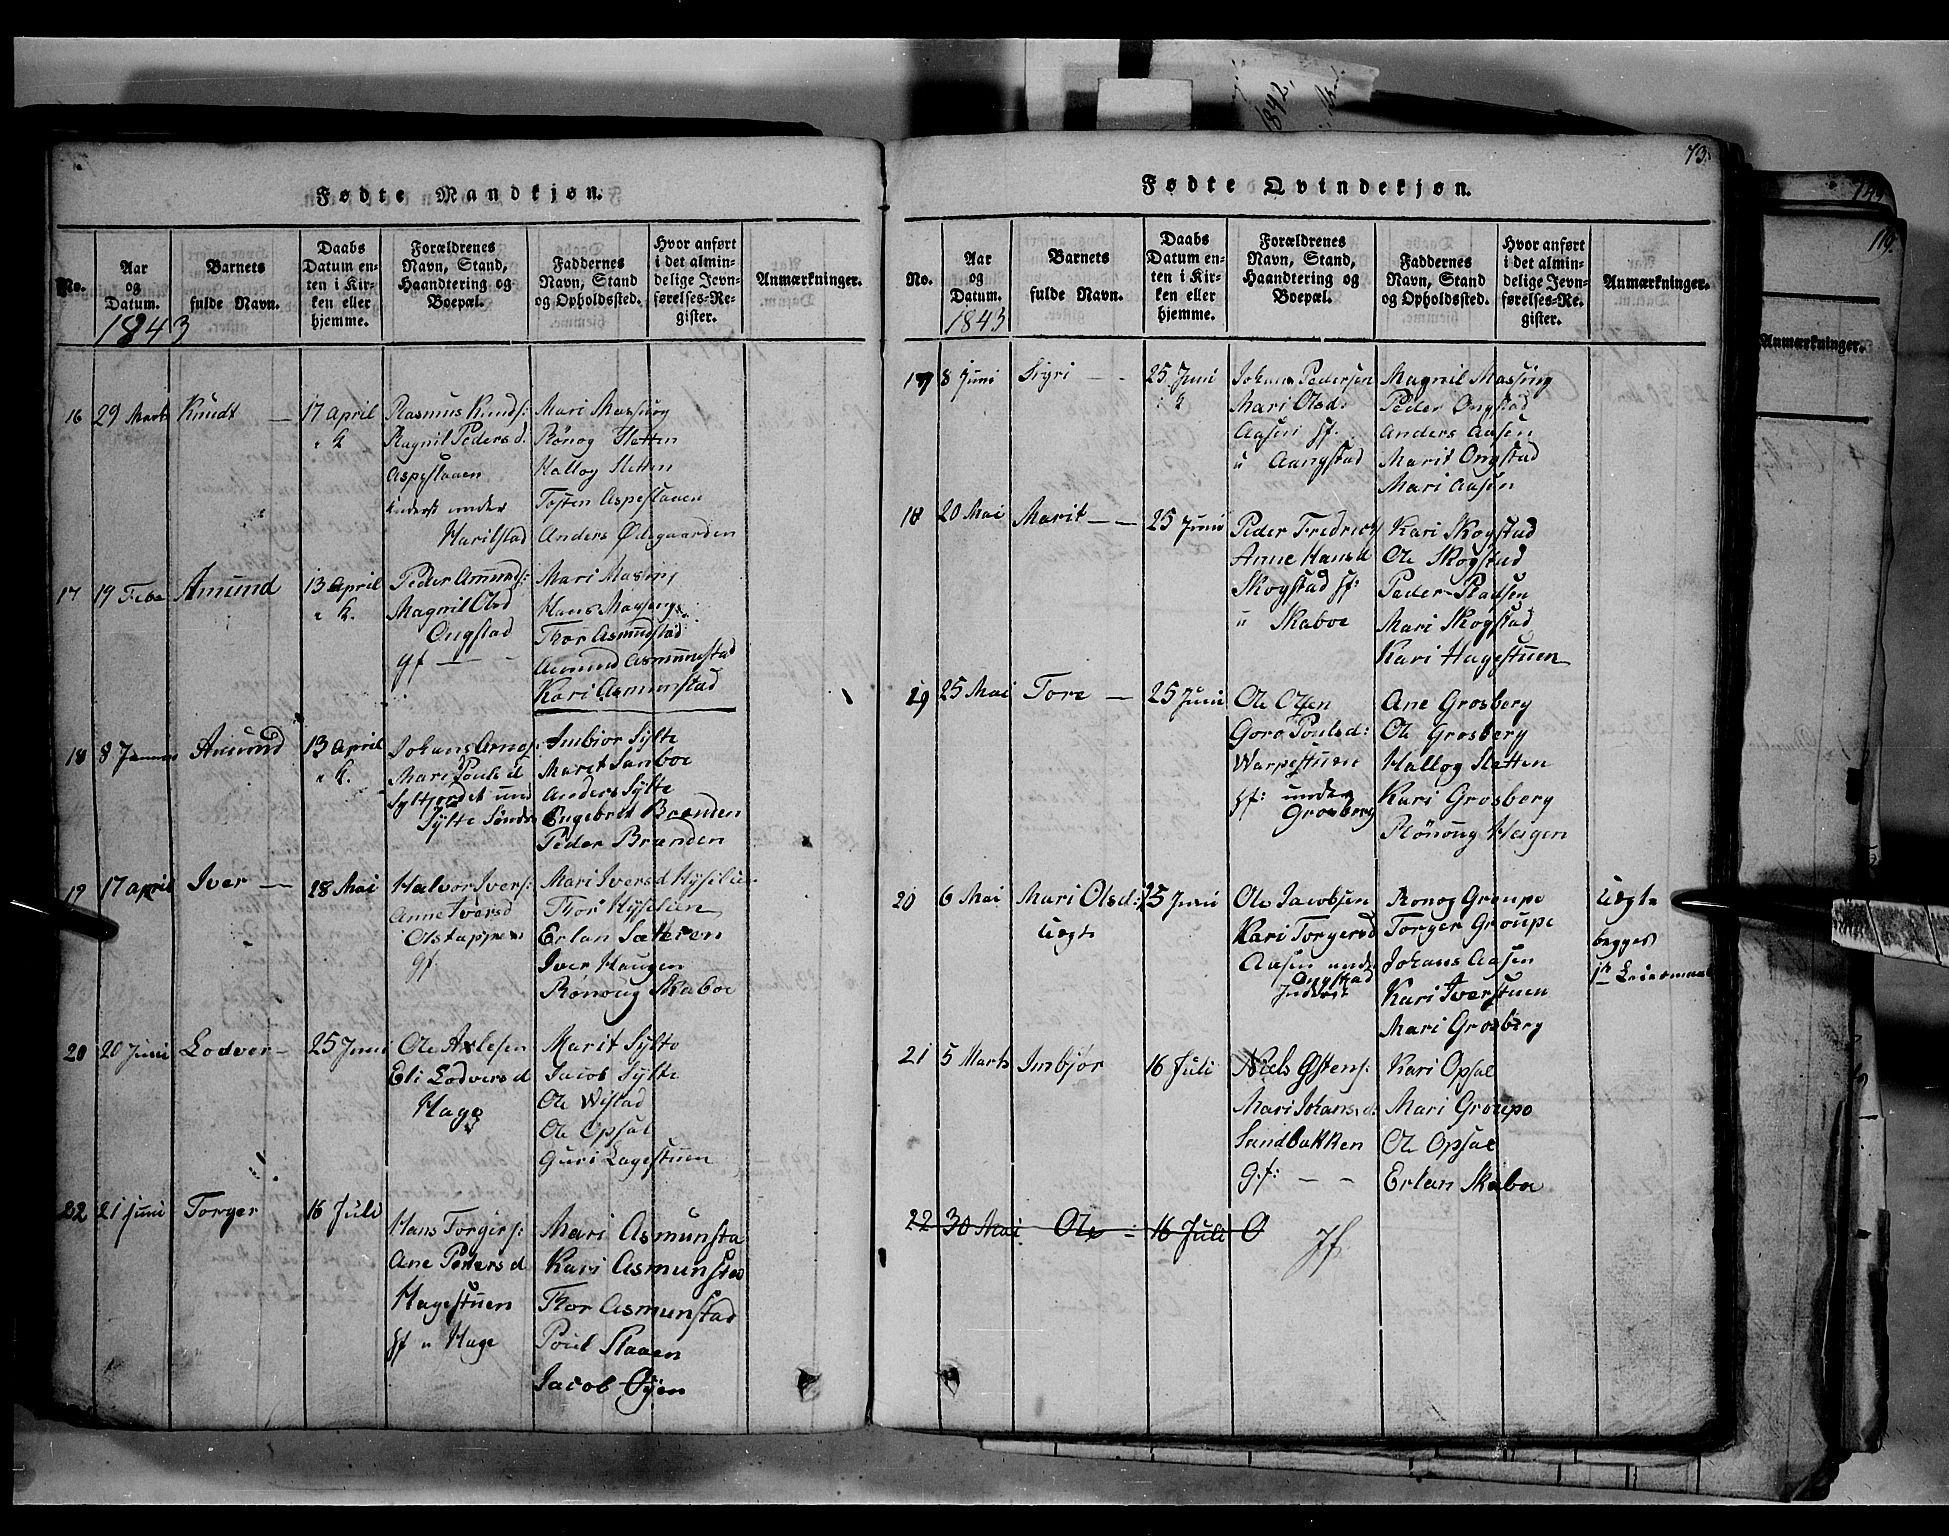 Fødte Mandkjøn.
No.
Aar og Datum.
1843
Barnets fulde Navn.
Daabs Datum enten i Kirken eller hjemme.
Forældrenes Navn, Stand, Haandtering og Boepæl.
Faddernes Navn, Stand og Opholdssted.
Hvor anført i det almindelige Jevnførelses-Register.
Anmærkninger.
16 29 Marts Knudt — 17 April Rasmus Knuds: Mari Massing
" K Ragnil Pedersd: Rønog Sletten
Aspeslaaen Hallog Sletten
under Tosten Aspeslaaen
Harilstad Anders Ødegaarden
17 19 Feb Amund 13 April Peder Amunds: Mari Massing
" K. Magnil Olsd Hans Massing
Ongstad Thor Asmundstad
gf — Amund Asmunstad
Kari Asmunstad
18 8 Amund 13 April Johans Imbjor Sylte
" K. Mari Pouls d Marit Sanboe
und Anders Sylte
Sylte Søndre Engebret Brænden
Peder Brænden
19 17 April Iver — 28 Mai Halvor Ivers: Mari Iversd
Anne Iversd Thor
Olstappen Erlan Sæteren
gf Iver Haugen
Ronoug Skaboe
20 20 Juni Lodver — 25 Juni Ole Axlesen Marit Sylte
Eli Lodversd Jacob Sylte
Hage Ole Wistad
Ole Opsal
Guri Lagestuen
22 21 Juni Torger 16 Juli Hans Torgers: Mari Asmunsta
Ane Pedersd Kari Asmunstad
Hagestuen Thor Asmunstad
gf u Hage Poul Slaaen
Jacob Øyen
73.
Fødte Qvindekjøn.
No.
Aar og Datum.
1843
Barnets fulde Navn.
Daabs Datum enten i Kirken eller hjemme.
Forældrenes Navn, Stand, Haandtering og Boepæl.
Faddernes Navn, Stand og Opholdssted.
Hvor anført i det almindelige Jevnførelses-Register.
Anmærkninger.
17 8 Juni Sigri — 25 Juni Johans Pedersen Magnil Massing
" K Mari Olsd: Peder Ongstad
Aasen gf. Anders Aasen
u Aangstad Marit Ongstad
Mari Aasen
18 20 Mai Marit — 25 Juni Peder Fredrics Kari Skogstad
Anne Hansd Ole Skogstad
Skogstad gf: Peder
u Skaboe Mari Skogstad
Kari Hagestuen
19 25 Mai Tore — 25 Juni Ole Olsen Ane Grosberg
Goro Poulsd: Ole Grosberg
Warpestuen Hallog Sletten
gf: under Kari Grosberg
Grosberg Rönoug Haugen
20 6 Mai Mari Olsd: 25 Juni Ole Jacobsen Ronog Groupe Uægte
Uægte Kari Torgersd Torger Groupe begges
Aasen under Johans Aasen 1te Leiermaal
Ongstad Kari Iverstuen
Mari Grosberg
21 5 Marts Imbjør 16 Juli Niels Østens: Kari Opsal
Mari Johansd: Mari Groupe
Sandbakken Ole Opsal
gf: — Erlan Skaboe
22 30 Mai Ole 16 Juli O
1842,
119.
Anmærkninger.